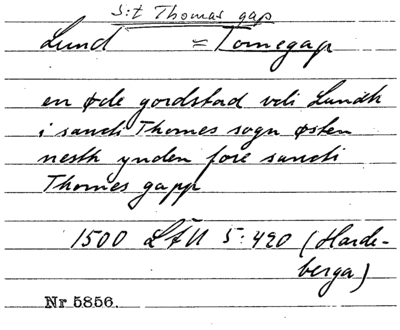 S:t Thomas gap
Lund = Tomegap
en øde gordstad vdi Lundh
i sancti Thomes sogn østen
nesth ynden fore sancti
Thomes gapp
1500 LÄU 5:420 (Harde-
berga)
Nr 5856.